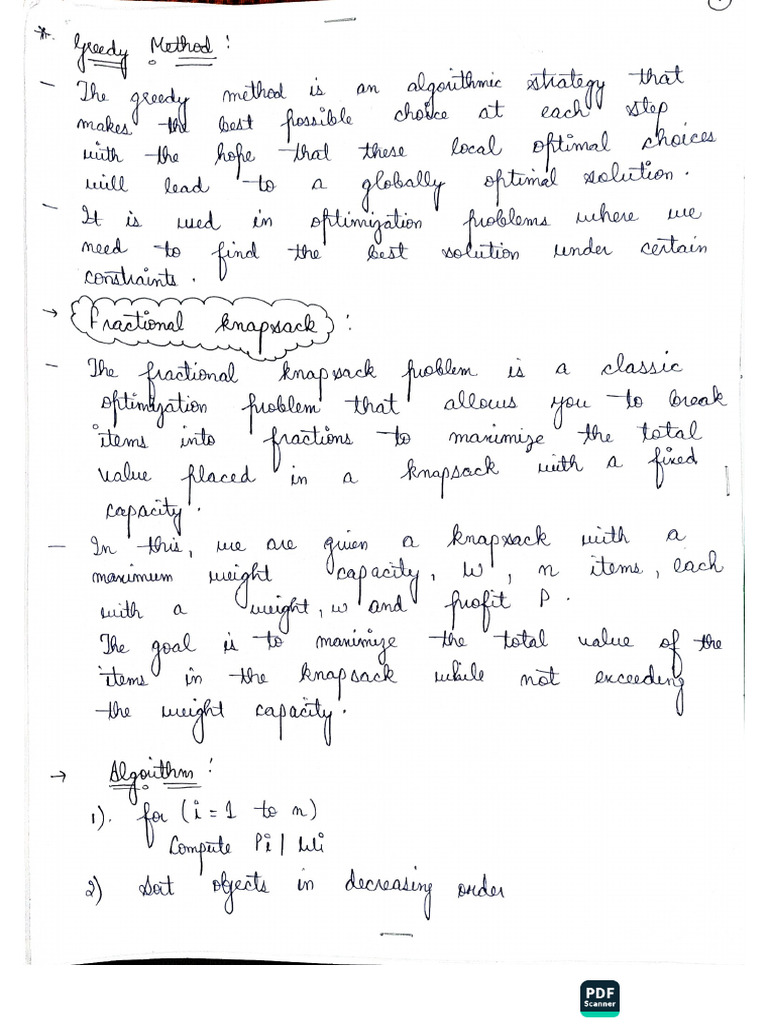 *. Greedy Method :
- The greedy method is an algorithmic strategy that
makes the best possible choice at each step
with the hope that these local optimal choices
will lead to a globally optimal solution.
- It is used in optimization problems where we
need to find the best solution under certain
constraints.
→ Fractional knapsack :
- The fractional knapsack problem is a classic
optimization problem that allows you to break
items into fractions to maximize the total
value placed in a knapsack with a fixed
capacity.
- In this, we are given a knapsack with a
maximum weight capacity, W, n items, each
with a weight, w and profit P.
The goal is to maximize the total value of the
items in the knapsack while not exceeding
the weight capacity.
→ Algorithm :
1). for (i = 1 to n)
Compute Pi / Wi
2) Sort objects in decreasing order
PDF
Scanner